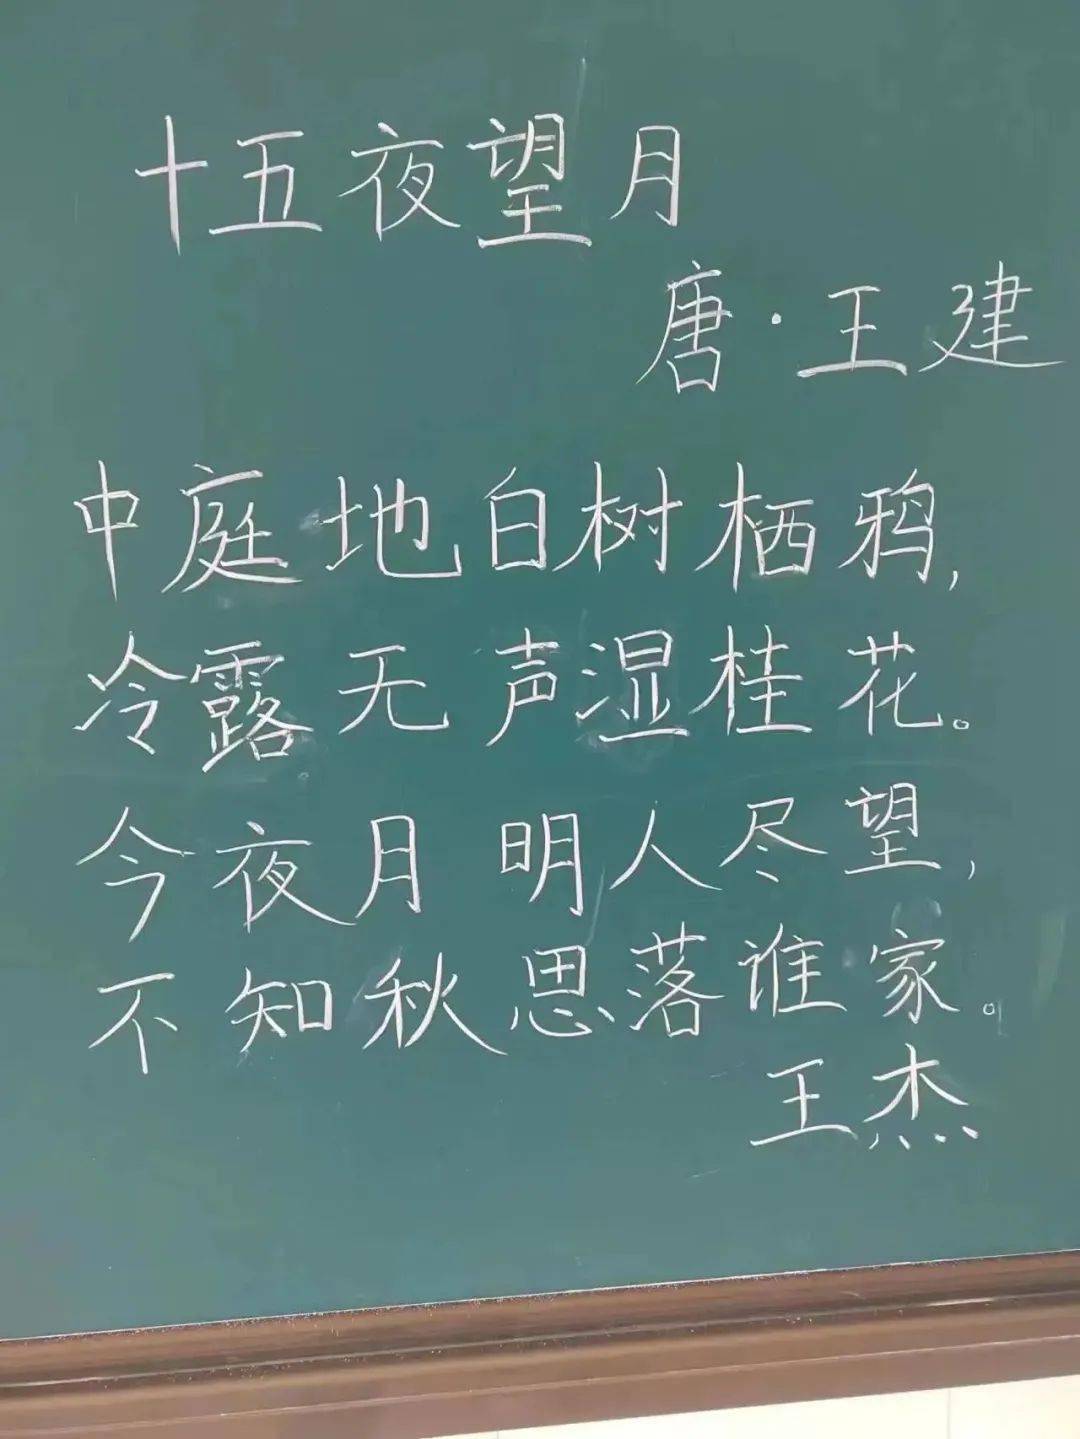 十五夜望月
唐·王建
中庭地白树栖鸦，
冷露无声湿桂花。
今夜月明人尽望，
不知秋思落谁家。
王杰